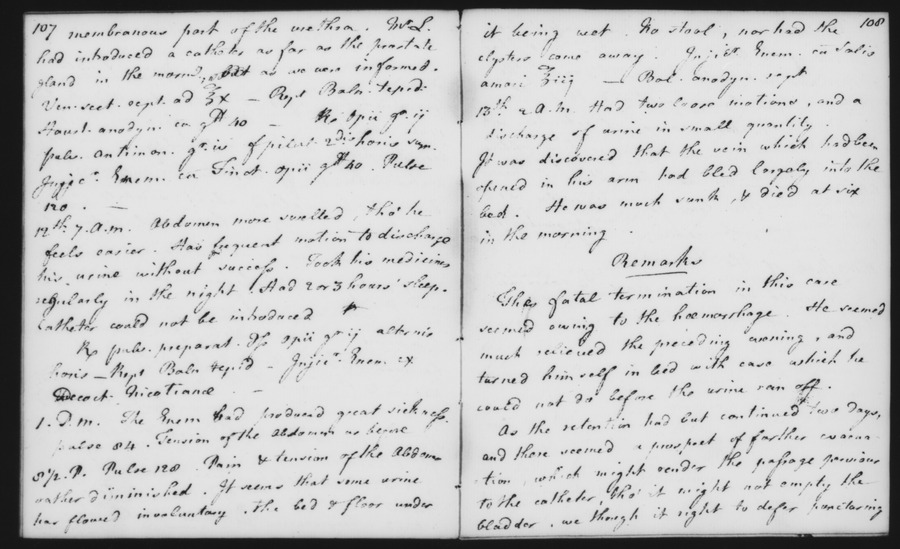 107
membranous part of the urethra. Mr L.
had introduced a catheter as far as the prostate
gland in the morng, but as we were informed.
Ven. sect. rept. ad ℥x — Rept Baln: tepid:
Haust. anodyn: cu gtt 40 — Rx Opii gr. ij
pulv. antimon. gr. iv of pilul. 2dis horis sum.
Injice. Enem. cu Tinct. opii gtt 40. Pulse
120 —
12th 7. A.m. Abdomen more swelled, tho' he
feels easier. Has frequent motion to discharge
his urine without success. Took his medicines
regularly in the night. Had 2 or 3 hours' sleep.
Catheter could not be introduced
Rx pulv. preparat. Opii gr ij alternis
horis — Rept Baln tepid — Injice. Enem. ex
Decoct. Nicotianæ —
1. P. m. The Enem had produced great sickness.
pulse 84. Tension of the Abdomen as before
8 1/2. P. Pulse 128. Pain & tension of the Abdomen
rather diminished. It seems that some urine
has flowed involuntary. the bed & floor under
108
it being wet. No stool, nor had the
clysters come away. Injicr Enem. cu Salis
amari ℥iij — Bol. anodyn. rept
13th 2 A.m. Had two loose motions, and a
discharge of urine in small quantity.
It was discovered that the vein which had been
opened in his arm had bled largely into the
bed. He was much sunk, & died at six
in the morning.
Remarks
The fatal termination in this case
seemed owing to the hæmorrhage. He seemed
much relieved the preceding evening, and
turned himself in bed with ease which he
could not do before the urine ran off.
As the retention had but continued two days,
and there seemed a prospect of farther evacua-
tion, which might render the passage pervious
to the catheter, tho' it might not empty the
bladder. we though it right to defer puncturing